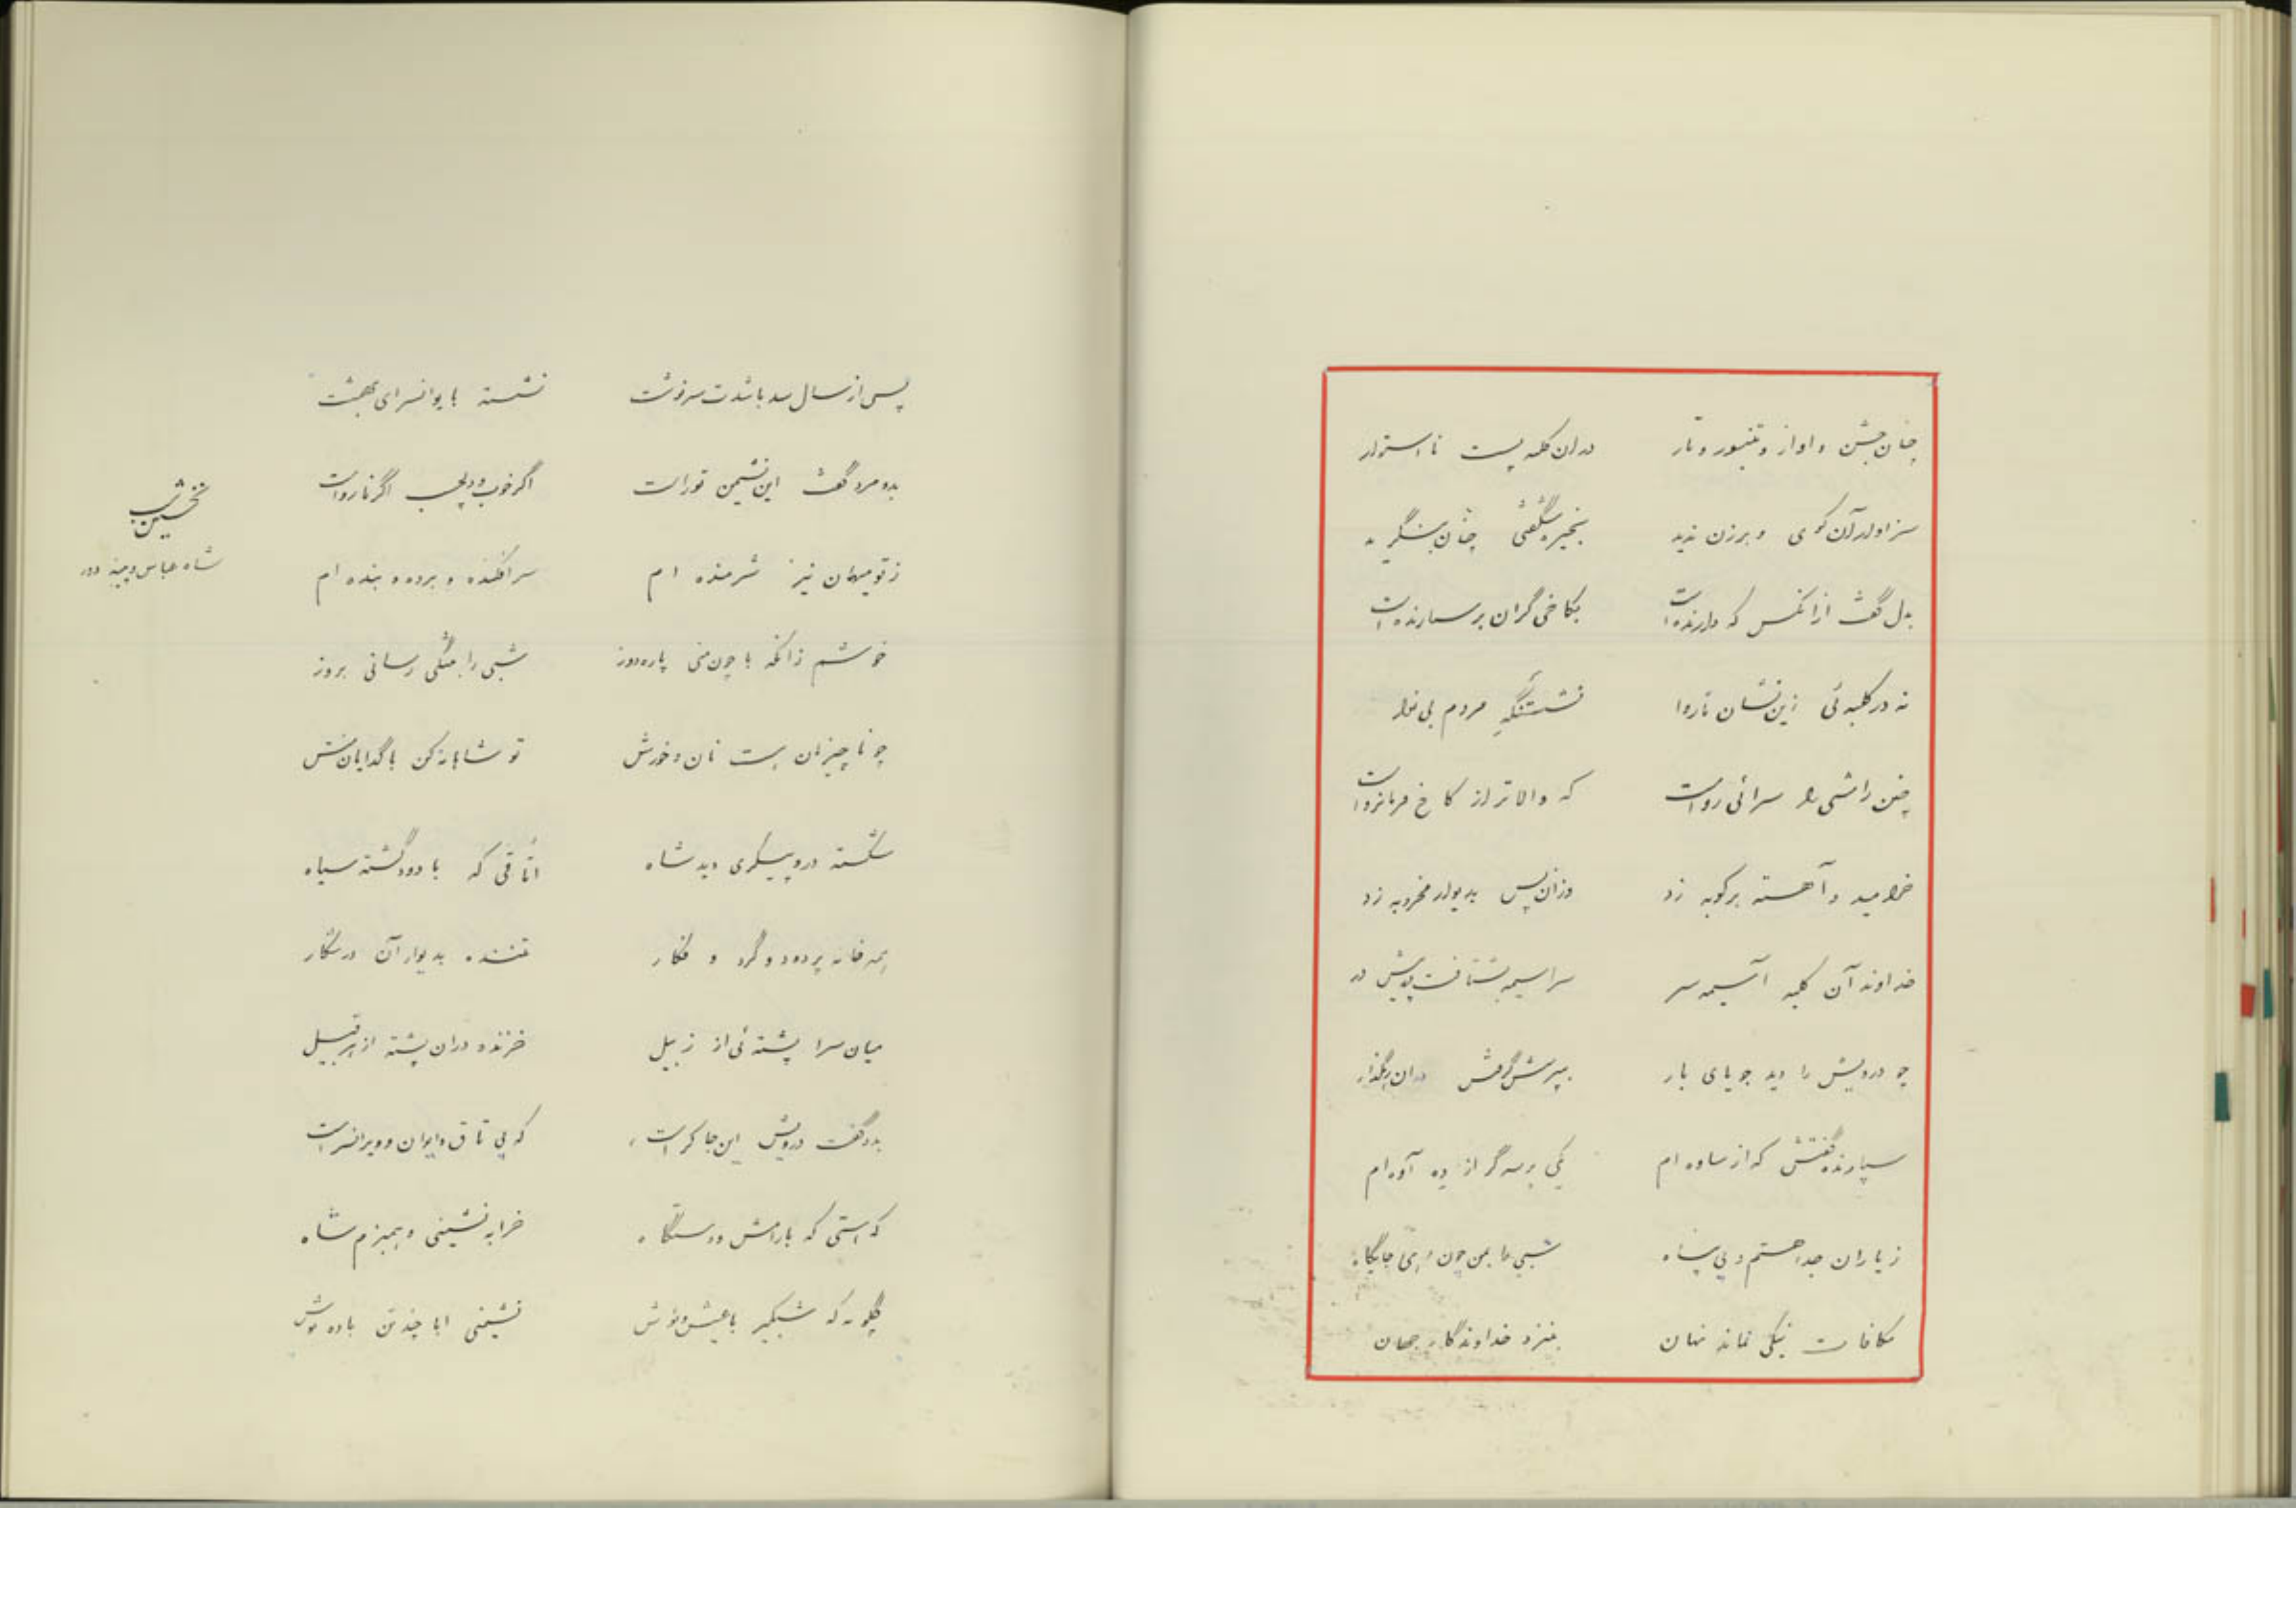 چنان جشن و اواز و تنبور و تار دران کلبه پست نا استوار
سزاوار آن کوی و برزن ندید بخیره شگفتی چنان بنگرید
بدل گفت ازانکس که دارنده است بکاخی گران بر سپارنده است
نه در کلبه ئی زین نشان ناروا نشستنگهِ مردم بی نوا
چنین رامشی را سرائی رواست که والاتر از کاخ فرمانرواست
خرامید و آهسته بر کوبه زد وزان پس بدیوار مخروبه زد
خداوند آن کلبه آسیمه سر سراسیمه بشتافت پیش در
چو درویش را دید جویای بار بپرسش گرفتش دران رهگذار
سپارنده گفتش که از ساوه ام یکی برسه گر از ده آوه ام
ز یاران جدا هستم و بی پناه شبی با من چون بی جایگاه
مکافات نیکی نماند نهان بنزد خداوندگار جهان
پس از سال سد باشدت سرنوشت نشسته بایوانسرای بهشت
بدو مرد گفت این نشیمن توراست اگر خوب و دلچسب اگر نارواست
ز تو میهمان نیز شرمنده ام سرافکنده و برده و بنده ام
خوشم زانکه با چون منی پاره دوز شبی را بتنگی رسانی بروز
چو ناچیزمان هست نان و خورش تو شاهانه کن با گدایان منش
شکسته در و پیکری دید شاه اتاقی که با دود گشته سیاه
همه خانه پر دود و گرد و نگار تننده بدیوار آن در شکار
میان سرا پشته ئی از زبیل خزنده دران پشته از هر قبیل
بدو گفت درویش این جا کراست، که بی تاق و ایوان و ویرانسراست
که استی که با رامش و دستگاه خرابه نشینی و همبزم شاه
چگونه که شبگیر با عیش و نوش نشینی ابا چند تن باده نوش
نخستین شب
شاه عباس و پینه دوز